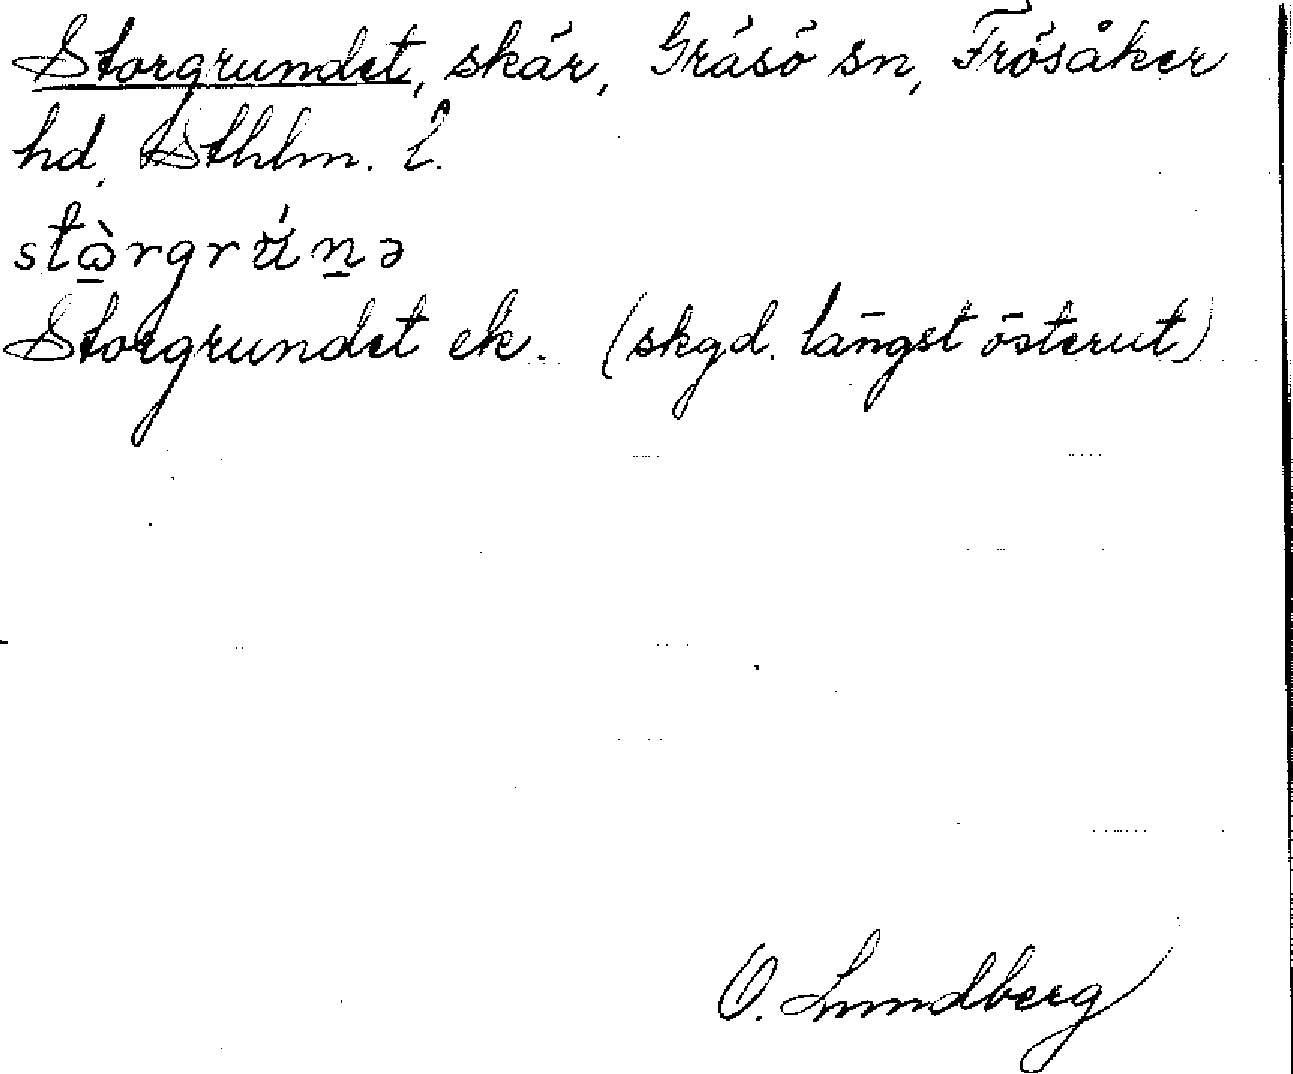 Storgrundet, skär, Gräsö sn, Frösåker
hd, Sthlm. l.
stὼ̲rgrʉ́n̲ə
Storgrundet ek. (skgd. längst österut)
O. Lundberg